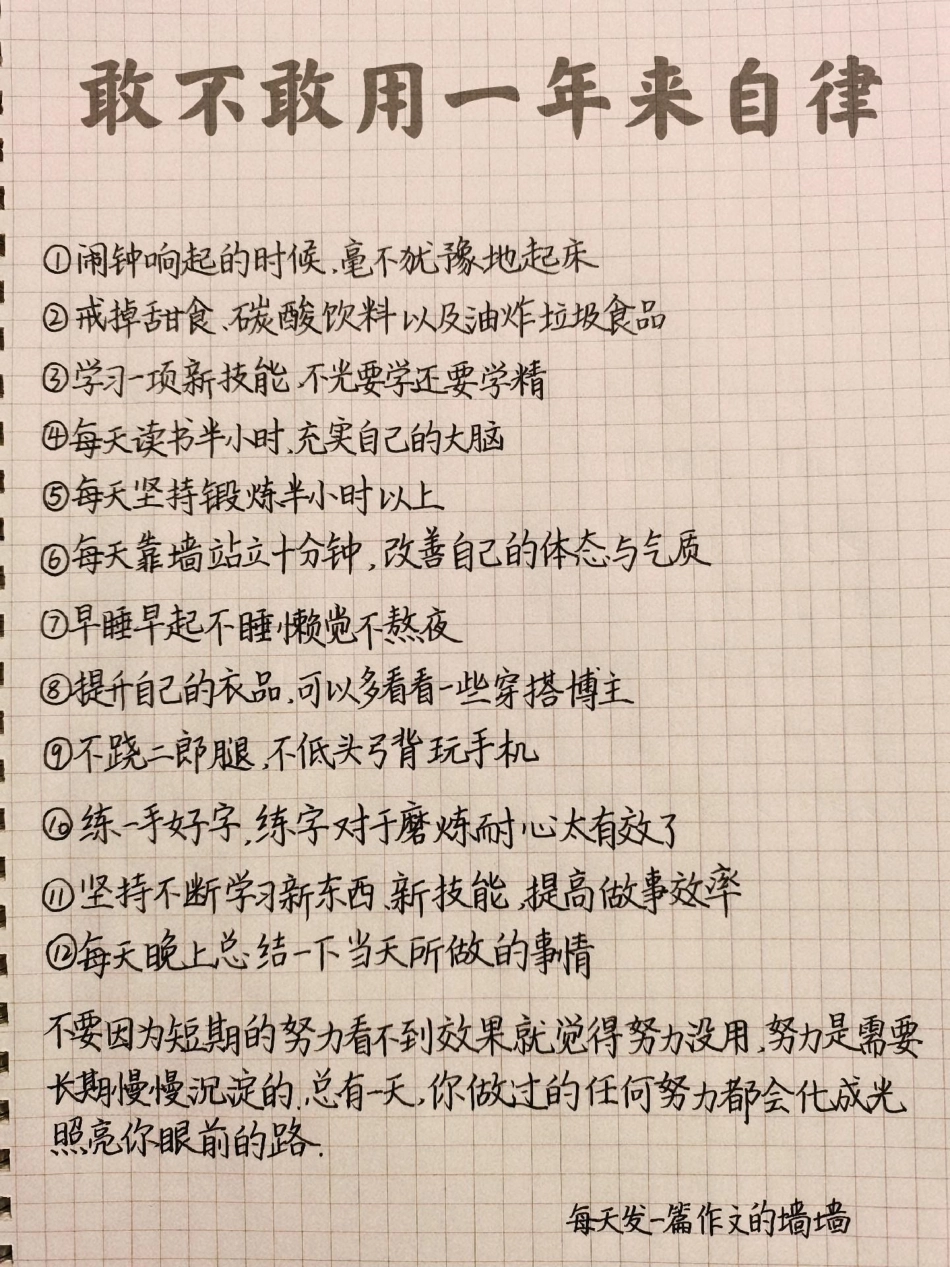 敢不敢用一年来自律
①闹钟响起的时候、毫不犹豫地起床
②戒掉甜食、碳酸饮料以及油炸垃圾食品
③学习一项新技能、不光要学还要学精
④每天读书半小时、充实自己的大脑
⑤每天坚持锻炼半小时以上
⑥每天靠墙站立十分钟,改善自己的体态与气质
⑦早睡早起不睡懒觉不熬夜
⑧提升自己的衣品,可以多看看一些穿搭博主
⑨不跷二郎腿,不低头弓背玩手机
⑩练一手好字,练字对于磨炼耐心太有效了
⑪坚持不断学习新东西、新技能,提高做事效率
⑫每天晚上总结一下当天所做的事情
不要因为短期的努力看不到效果就觉得努力没用,努力是需要
长期慢慢沉淀的.总有一天,你做过的任何努力都会化成光
照亮你眼前的路.
每天发一篇作文的墙墙